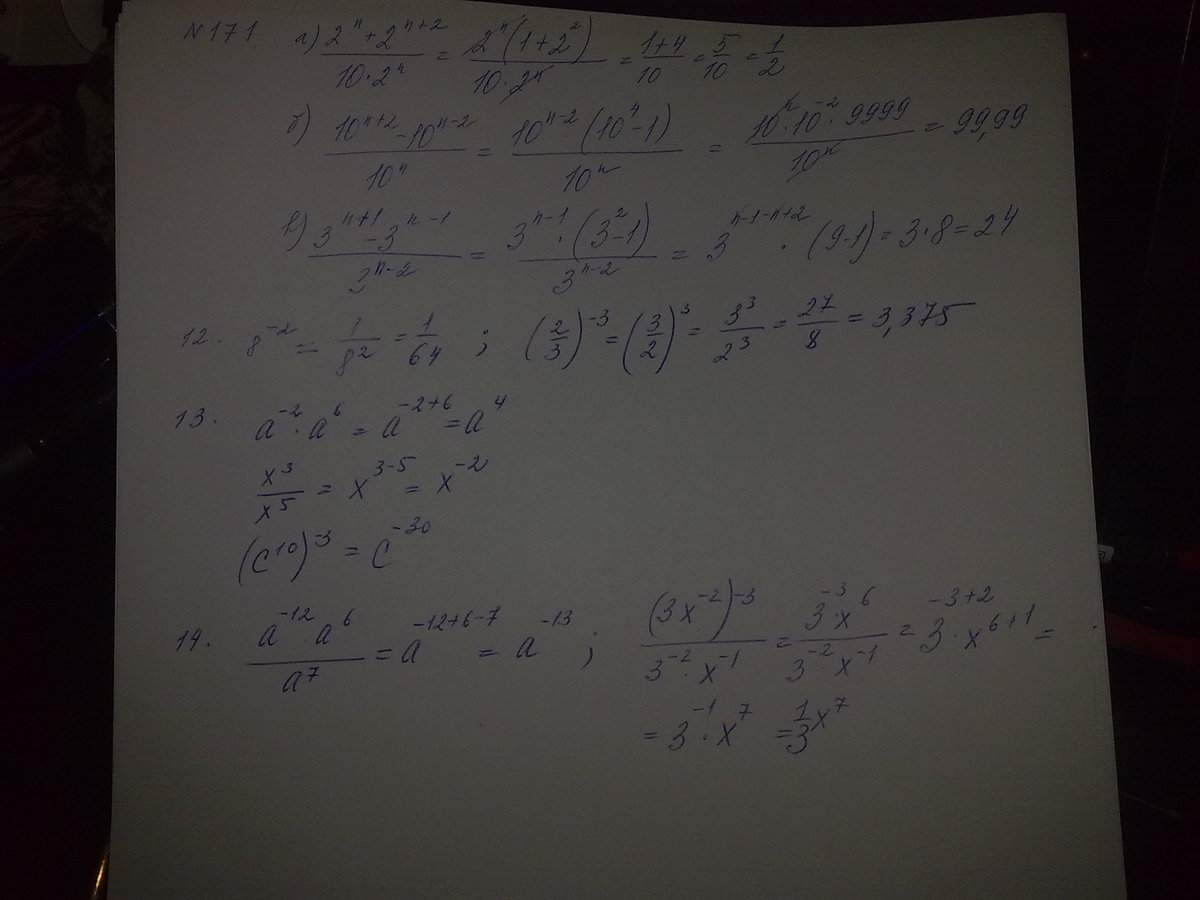 N171 а) (2^n + 2^(n+2))/(10·2^n) = (2^n(1+2^2))/(10·2^n) = (1+4)/10 = 5/10 = 1/2
б) (10^(n+2) - 10^(n-2))/(10^n) = (10^(n-2)(10^4-1))/(10^n) = (10^n·10^(-2)·9999)/(10^n) = 99,99
в) (3^(n+1) - 3^(n-1))/(3^(n-2)) = (3^(n-1)·(3^2-1))/(3^(n-2)) = 3^(n-1-n+2)·(9-1) = 3·8 = 24
12. 8^(-2) = 1/8^2 = 1/64 ; (2/3)^(-3) = (3/2)^3 = 3^3/2^3 = 27/8 = 3,375
13. a^(-2)·a^6 = a^(-2+6) = a^4
x^3/x^5 = x^(3-5) = x^(-2)
(c^10)^(-3) = c^(-30)
14. (a^(-12)·a^6)/a^7 = a^(-12+6-7) = a^(-13) ; (3x^(-2))^(-3)/(3^(-2)·x^(-1)) = (3^(-3)·x^6)/(3^(-2)x^(-1)) = 3^(-3+2)·x^(6+1) =
= 3^(-1)·x^7 = 1/3 x^7